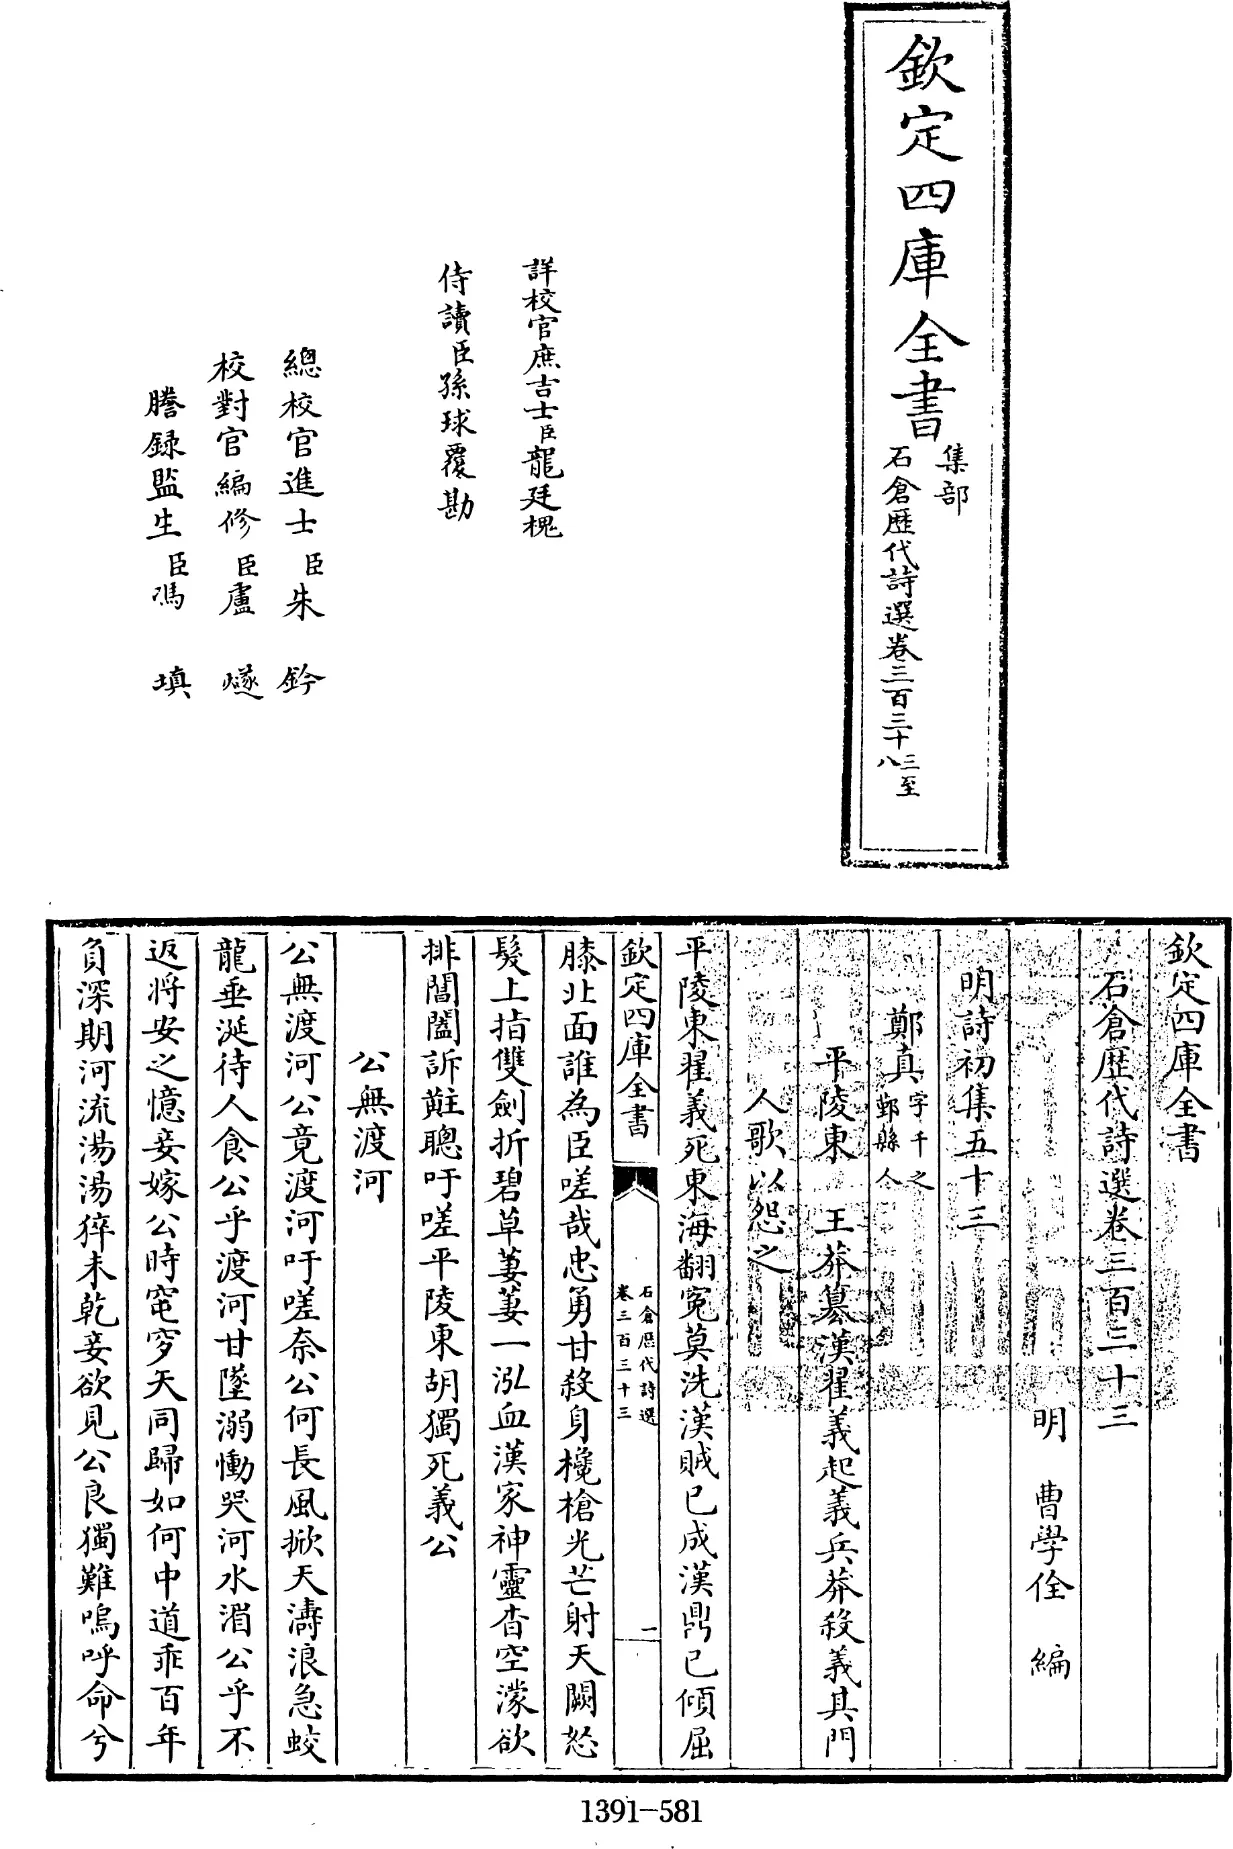 欽定四庫全書
集部
石倉歷代詩選卷三百三十三至
八
詳校官庶吉士臣龍廷槐
侍讀臣孫球覆勘
總校官進士臣朱鈐
校對官編修臣盧燧
謄録監生臣馮填
欽定四庫全書
石倉歷代詩選卷三百三十三
明 曹學佺 編
明詩初集五十三
鄭真字千之鄞縣人
平陵東 王莽簒漢翟義起義兵莽殺義其門
人歌以怨之
平陵東翟義死東海翻寃莫洗漢賊已成漢鼎已傾屈
欽定四庫全書
石倉歷代詩選
卷三百三十三
一
膝北面誰為臣嗟哉忠勇甘殺身欃槍光芒射天闕怒
髮上指雙劍折碧草萋萋一泓血漢家神靈杳空濛欲
排閶闔訴黈聰吁嗟平陵東胡獨死義公
公無渡河
公無渡河公竟渡河吁嗟奈公何長風掀天濤浪急蛟
龍垂涎待人食公乎渡河甘墜溺慟哭河水湄公乎不
返將安之憶妾嫁公時窀穸天同歸如何中道乖百年
負深期河流湯湯猝未乾妾欲見公良獨難嗚呼命兮
1391-581